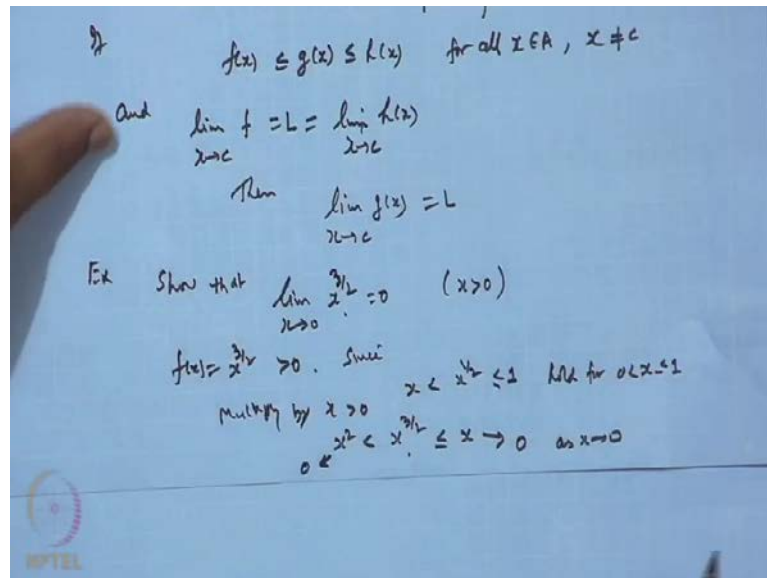 If f(x) ≤ g(x) ≤ h(x) for all x ∈ A, x ≠ c
And lim f = L = lim h(x)
x→c x→c
Then lim g(x) = L
x→c
Ex Show that lim x^{3/2} = 0 (x>0)
x→0
f(x) = x^{3/2} > 0. Since
x < x^{1/2} ≤ 1 hold for 0<x≤1
Multiply by x > 0
0 ← x^2 < x^{3/2} ≤ x → 0 as x→0
NPTEL